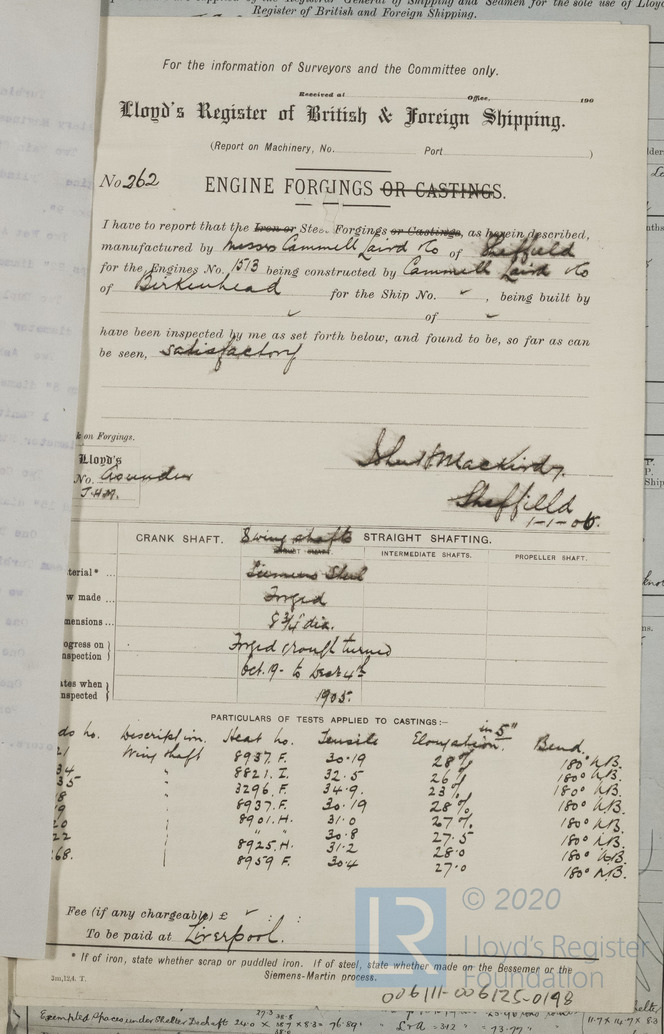 Register of British and Foreign Shipping.
For the information of Surveyors and the Committee only.
Received at Office, 190
Lloyd's Register of British & Foreign Shipping.
(Report on Machinery, No. Port )
No 262
ENGINE FORGINGS OR CASTINGS.
I have to report that the Iron or Steel Forgings or Castings, as herein described,
manufactured by Messrs Cammell Laird & Co of Sheffield
for the Engines No. 1513 being constructed by Cammell Laird & Co
of Birkenhead for the Ship No. ✓ , being built by
✓ of ✓
have been inspected by me as set forth below, and found to be, so far as can
be seen, satisfactory
k on Forgings.
Lloyd's
No. as under
J.H.M.
John H Mackirdy.
Sheffield
1-1-06.
CRANK SHAFT. Swing shafts STRAIGHT SHAFTING.
INTERMEDIATE SHAFTS. PROPELLER SHAFT.
terial* ... Siemens Steel
w made ... Forged
mensions ... 8¾" dia.
ogress on
nspection Forged & rough turned
ates when
nspected Oct. 19 - to Decr 4th
1905.
PARTICULARS OF TESTS APPLIED TO CASTINGS:—
No. Description. Heat No. Tensile Elongation in 5" Bend.
21 Wing shaft 8937.F. 30.19 28% 180° U.B.
34 " 8821.I. 32.5 26% 180° U.B.
35 " 3296.F. 34.9. 23% 180° U.B.
18 " 8937.F. 30.19 28% 180° U.B.
19 " 8901.H. 31.0 27% 180° U.B.
20 " " " 30.8 27.5 180° U.B.
22 " 8925.H. 31.2 28.0 180° U.B.
68. " 8959 F. 30.4 27.0 180° U.B.
Fee (if any chargeable) £ ✓ : :
To be paid at Liverpool.
* If of iron, state whether scrap or puddled iron. If of steel, state whether made on the Bessemer or the
Siemens-Martin process.
2m,12,4. T.
© 2020
LR
Lloyd's Register
Foundation
006111-006125-0198
Exempted spaces under Shelter Deck aft